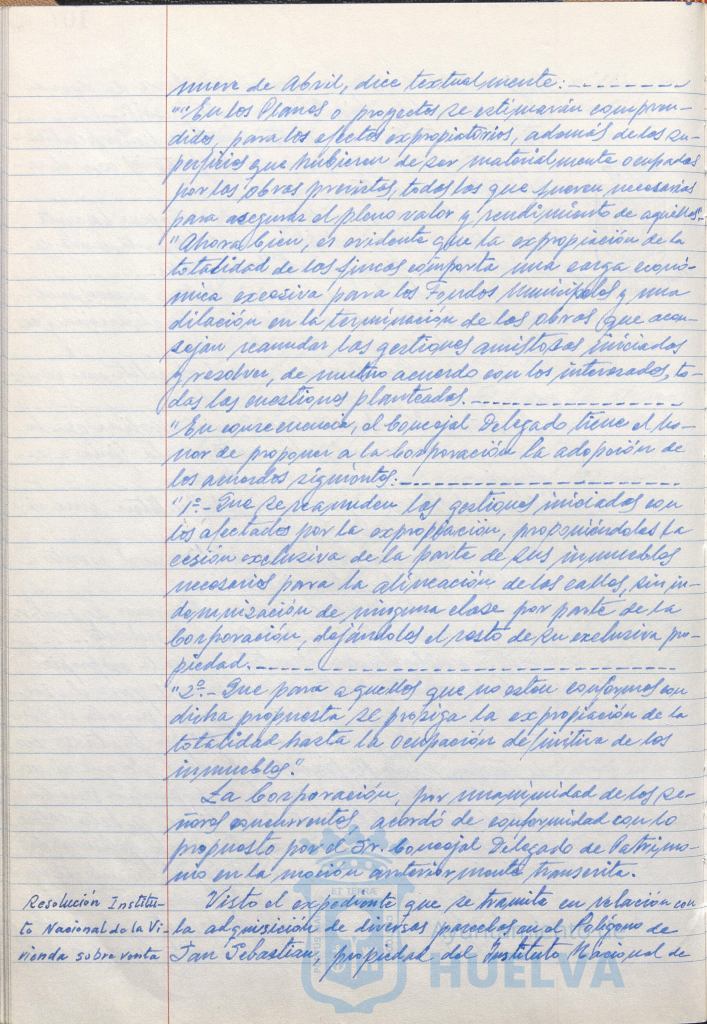 nueve de Abril, dice textualmente:
"En los Planos o proyectos se estimarán compren-
didos, para los efectos expropiatorios, además de las su-
perficies que hubieren de ser materialmente ocupadas
por las obras previstas, todas las que fueren necesarias
para asegurar el pleno valor y rendimiento de aquellas".-
"Ahora bien, es evidente que la expropiación de la
totalidad de las fincas comporta una carga econó-
mica excesiva para los Fondos Municipales y una
dilación en la terminación de las obras que acon-
sejan reanudar las gestiones amistosas iniciadas
y resolver, de mutuo acuerdo con los interesados, to-
das las cuestiones planteadas.
"En consecuencia, el Concejal Delegado, tiene el ho-
nor de proponer a la Corporación la adopción de
los acuerdos siguientes:
"1º.- Que se reanuden las gestiones iniciadas con
los afectados por la expropiación, proponiéndoles la
cesión exclusiva de la parte de sus inmuebles
necesarios para la alineación de las calles, sin in-
demnización de ninguna clase por parte de la
Corporación, dejándoles el resto de su exclusiva pro-
piedad.
"2º.- Que para aquellos que no estén conformes con
dicha propuesta se prosiga la expropiación de la
totalidad hasta la ocupación definitiva de los
inmuebles".
La Corporación, por unanimidad de los se-
ñores concurrentes, acordó de conformidad con lo
propuesto por el Sr. Concejal Delegado de Patrimo-
nio en la moción anteriormente transcrita.
Resolución Institu-
to Nacional de la Vi-
vienda sobre venta
Visto el expediente que se tramita en relación con
la adquisición de diversas parcelas en el Polígono de
San Sebastián, propiedad del Instituto Nacional de
HUELVA